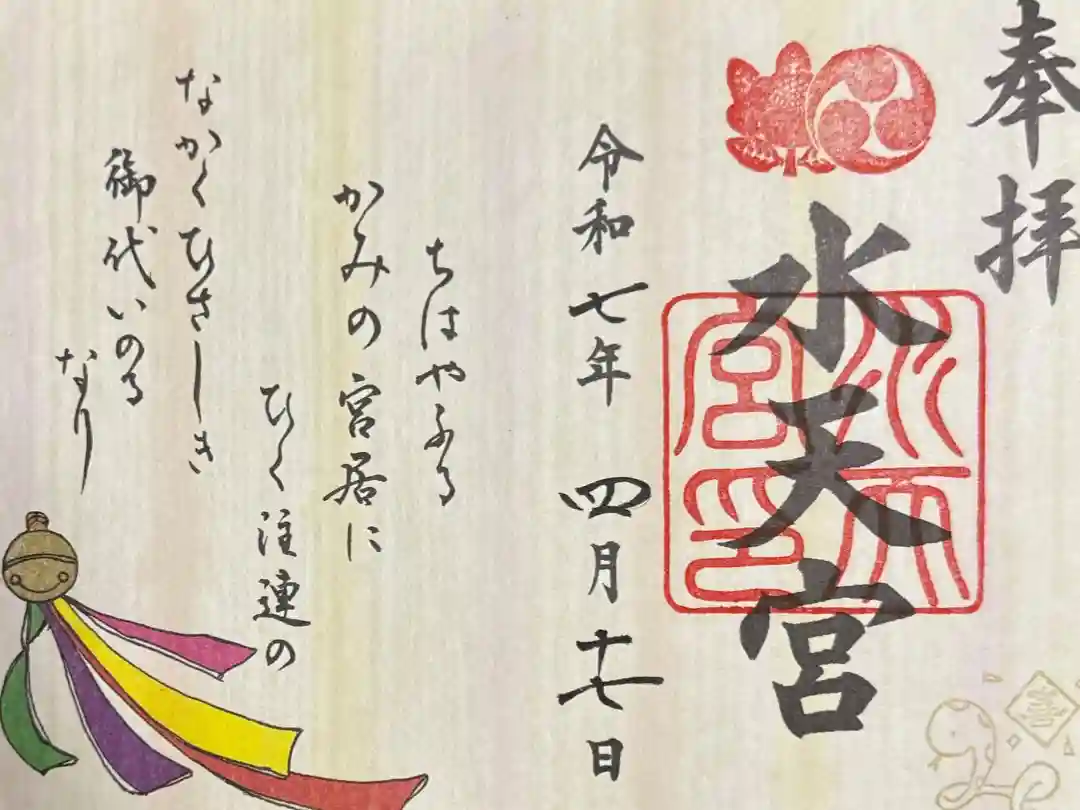 奉拝
水天宮
水天宮印
令和七年 四月 十七日
ちはやふる
かみの宮居に
ひく注連の
なかくひさしき
御代いのる
なり
喜